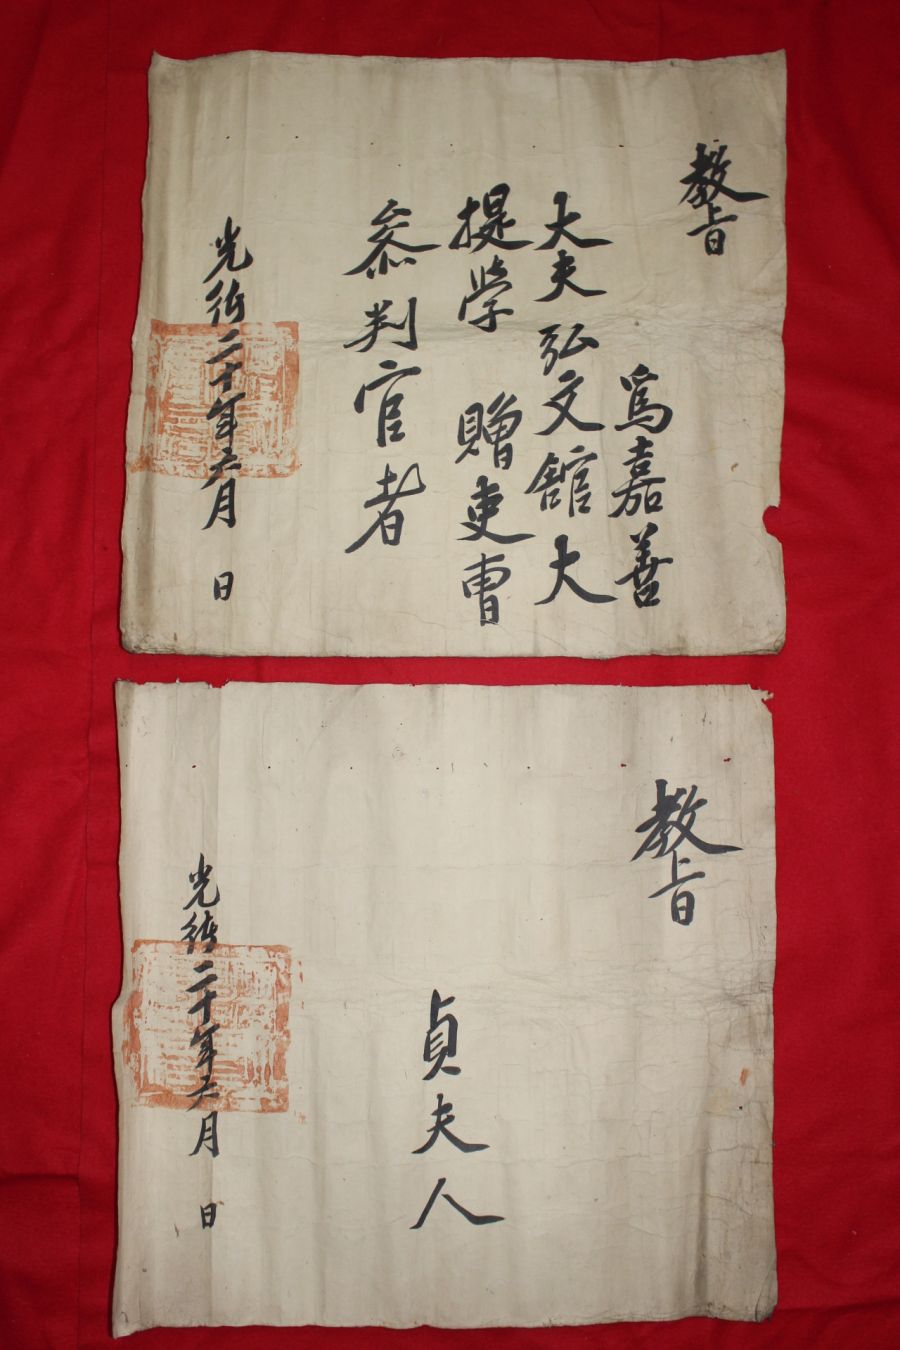 教旨
爲嘉善
大夫弘文舘大
提學 贈吏曺
參判官者
光緖二十年六月 日
教旨
貞夫人
光緖二十年六月 日